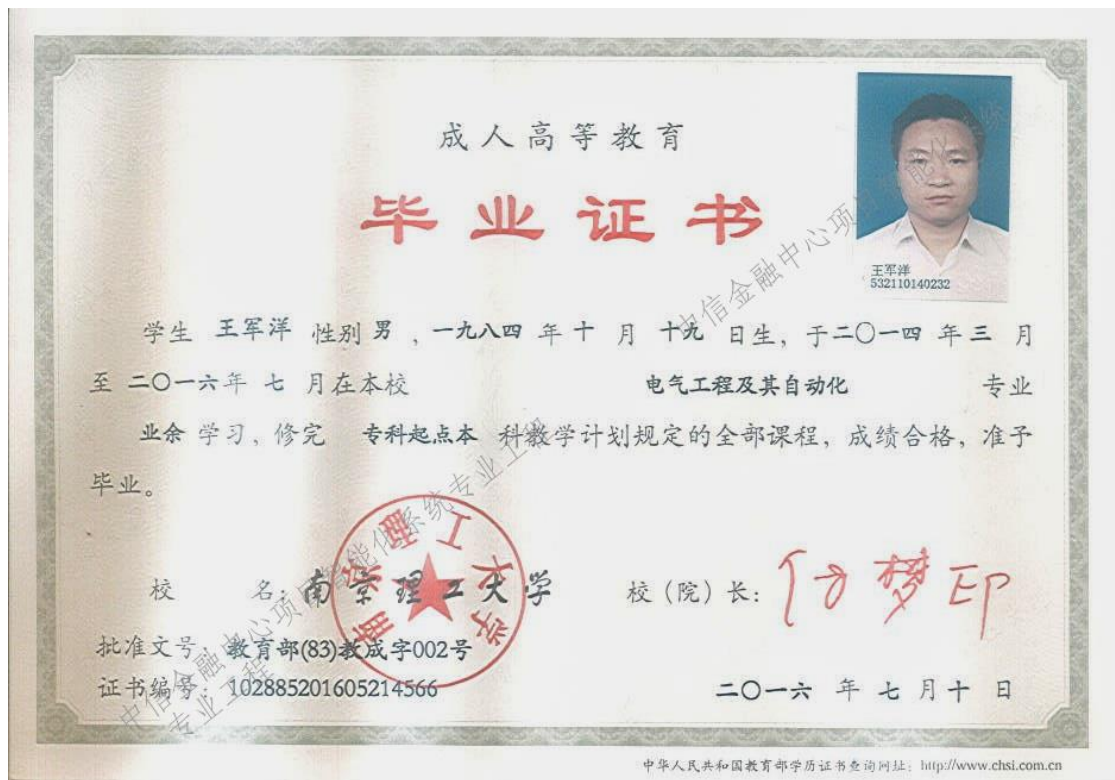 成人高等教育
毕业证书
王军洋
532110140232
学生 王军洋 性别 男 ，一九八四 年 十 月 十九 日生，于二〇一四 年 三 月
至 二〇一六 年 七 月在本校 电气工程及其自动化 专业
业余 学习，修完 专科起点本 科教学计划规定的全部课程，成绩合格，准予
毕业。
校 名：南京理工大学
南京理工大学
校（院）长：
批准文号：教育部(83)教成字002号
证书编号：102885201605214566
二〇一六 年 七 月 十 日
中信金融中心项目智能化系统专业工程
中信金融中心项目智能化系统
专业工程
中华人民共和国教育部学历证书查询网址：http://www.chsi.com.cn